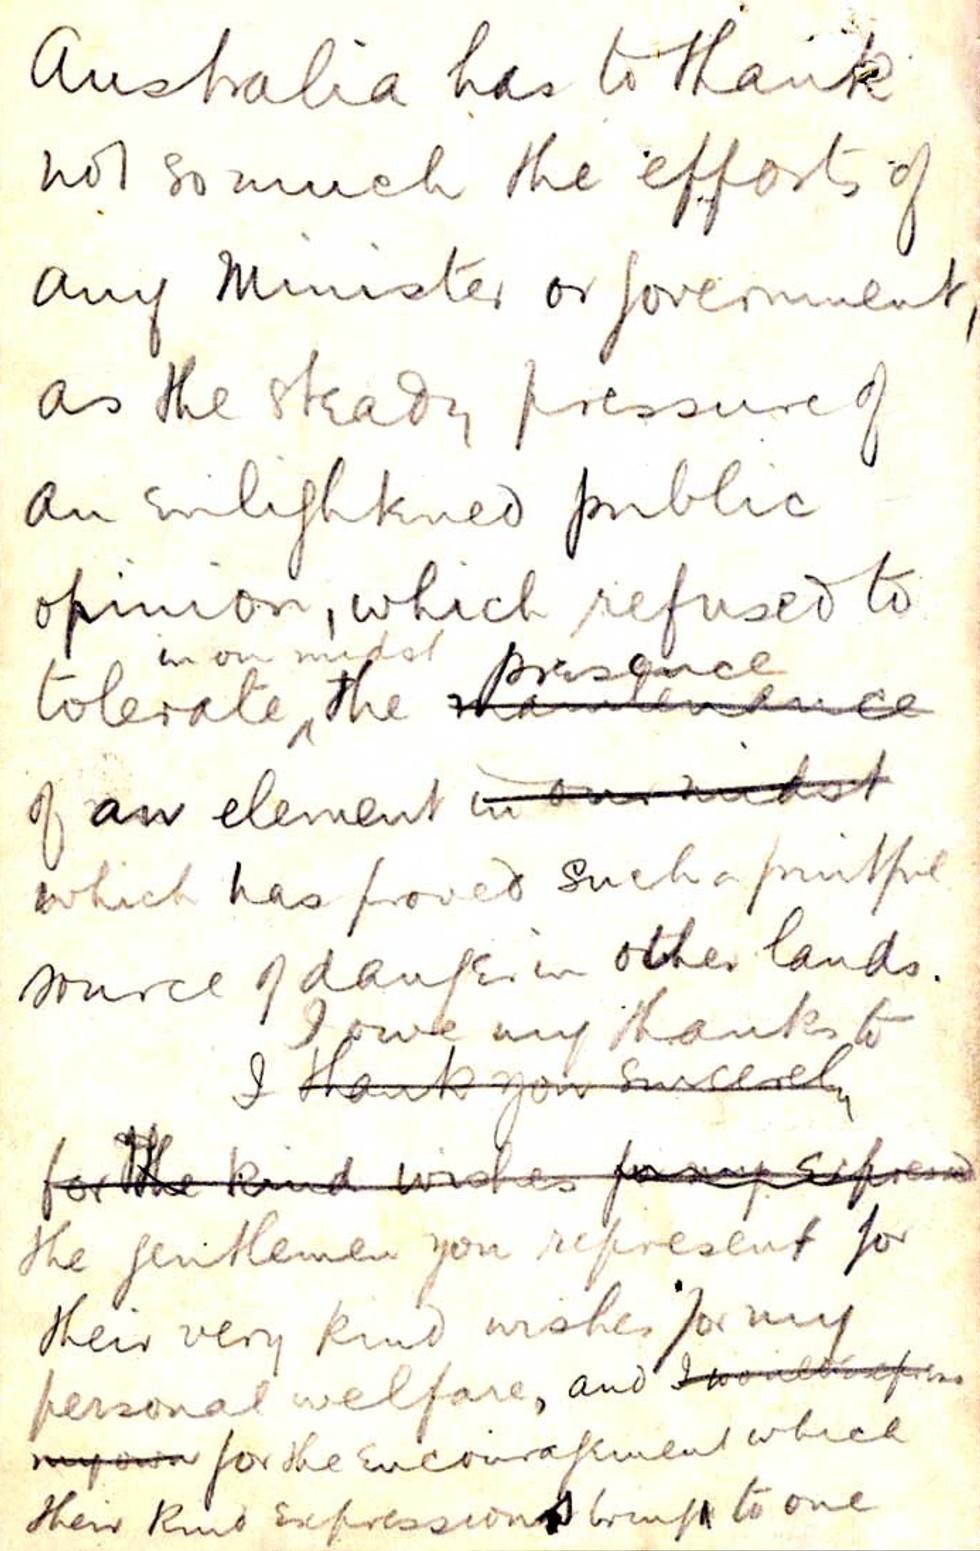 Australia has to thank
not so much the efforts of
any Minister or Government,
as the steady pressure of
an enlightened public
opinion, which refused to
in our midst presence
tolerate, the maintenance
of an element in our midst
which has proved such a fruitful
source of danger in other lands.
I owe my thanks to
I thank you sincerely
for the kind wishes for my expressed
the gentlemen you represent for
their very kind wishes for my
personal welfare, and I would express
my own for the encouragement which
their kind expressions bring to one